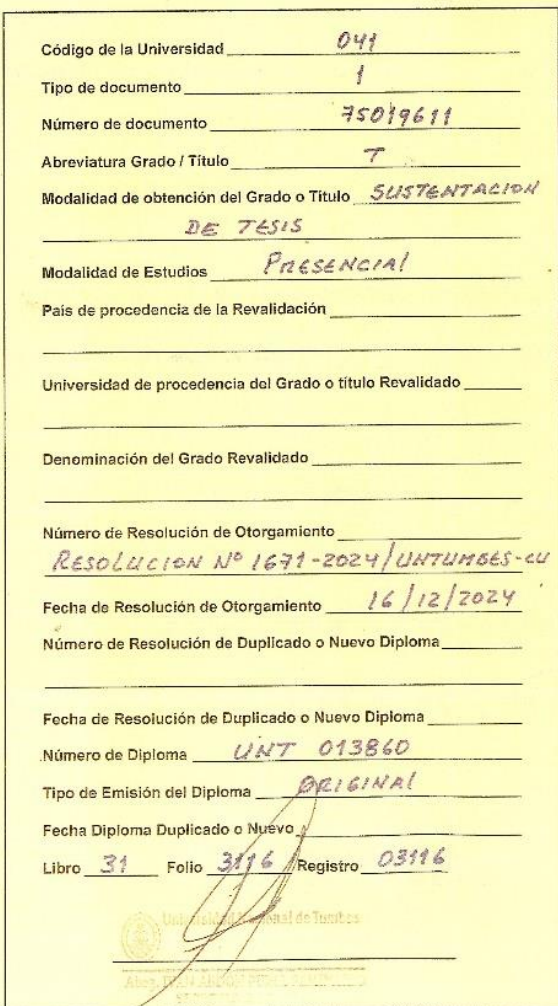 Código de la Universidad 041
Tipo de documento 1
Número de documento 75019611
Abreviatura Grado / Título T
Modalidad de obtención del Grado o Título SUSTENTACION
DE TESIS
Modalidad de Estudios PRESENCIAL
País de procedencia de la Revalidación
Universidad de procedencia del Grado o título Revalidado
Denominación del Grado Revalidado
Número de Resolución de Otorgamiento
RESOLUCION Nº 1671-2024/UNTUMBES-CU
Fecha de Resolución de Otorgamiento 16/12/2024
Número de Resolución de Duplicado o Nuevo Diploma
Fecha de Resolución de Duplicado o Nuevo Diploma
Número de Diploma UNT 013860
Tipo de Emisión del Diploma ORIGINAL
Fecha Diploma Duplicado o Nuevo
Libro 31 Folio 3116 Registro 03116
Universidad Nacional de Tumbes
Abog.